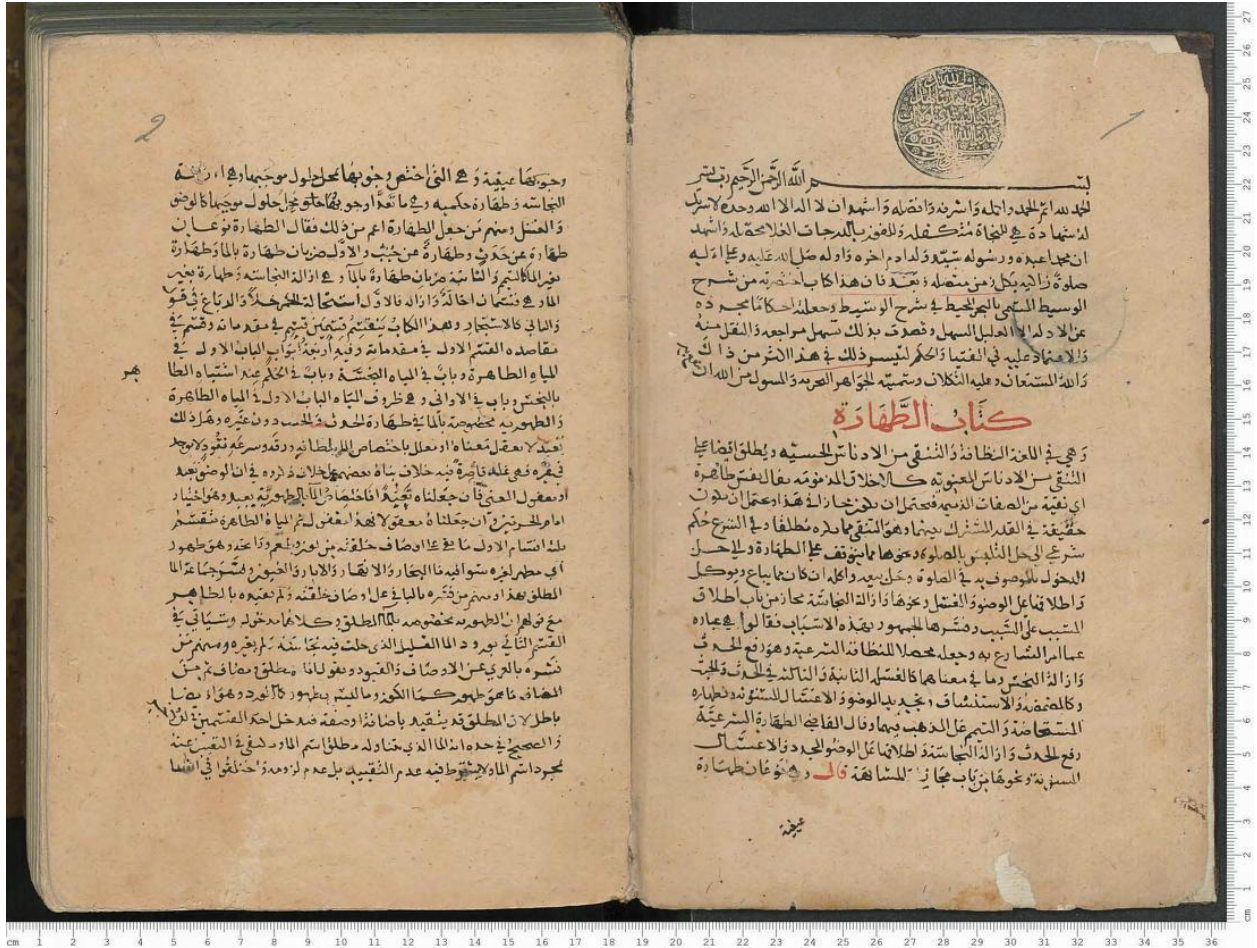 بسم الله الرحمن الرحيم رب يسر
الحمد لله اتم الحمد واكمله واشرفه وافضله واشهد ان لا اله الا الله وحده لا شريك
له شهادة هي للنجاة متكفله وللفوز بالدرجات العلا محصله واشهد
ان محمدا عبده ورسوله سيد ولد ادم اخره واوله صلى الله عليه وعلى اله
صلوة زاكيه بكل متصله وبعد فان هذا كتاب اختصرته من شرح
الوسيط المسمى بالبحر المحيط في شرح الوسيط وجعلته احكاما مجرده
عن الادله الا القليل السهل وقصدت بذلك تسهيل مراجعه والنقل منه
والاعتماد عليه في الفتيا والحكم لتيسر ذلك في هذا اكثر من ذاك
والله المستعان وعليه التكلان وسميته الجواهر البحريه والمسول من الله ان
كتاب الطهارة
وهي في اللغة النظافة والتنقي من الادناس الحسيه ويطلق ايضا على
التنقي من الادناس المعنويه كالاخلاق المذمومه يقال نفس طاهرة
اي نقية من الصفات الذميمه فيحتمل ان يكون مجازا في هذا ويحتمل ان يكون
حقيقة في القدر المشترك بينهما وهو التنقي مما يكره مطلقا وفي الشرع حكم
شرعي الى حل التلبس بالصلوة ونحوها مما يتوقف على الطهارة والى حل
الدخول بالموصوف به في الصلوة وحل بيعه واكله ان كان مما يباع ويوكل
واطلاقها على الوضو والغسل ونحوها وازالة النجاسة مجاز من باب اطلاق
المسبب على السبب وفسرها الجمهور بهذه الاسباب فقالوا هي عباره
عما امر الشارع به وجعله محصلا للنظافة الشرعية وهو رفع الحدث
وازالة النجس وما في معناهما كالغسلة الثانية والثالثة في الحدث والخبث
وكالمضمضه والاستنشاق وتجديد الوضو والاغتسال المسنونه وطهارة
المستحاضة والتيمم على المذهب فيهما وقال القاضي الطهارة الشرعية
رفع الحدث وازالة النجاسة واطلاقها على الوضو المجدد والاغتسال
المسنونة ونحوها من باب مجاز المشابهة قال وهي نوعان طهارة
عينية
وجوبها عينية وهي التي اختص وجوبها بمحل حلول موجبها وهي
النجاسه وطهارة حكميه وهي ما تعدا وجوبها محل حلول موجبها كالوضو
والغسل ومنهم من جعل الطهارة اعم من ذلك فقال الطهارة نوعان
طهارة عن حدث وطهارة عن خبث والاول ضربان طهارة بالما وطهارة
بغير الما كالتيمم والثانية ضربان طهارة بالما وهي ازالة النجاسه وطهارة بغير
الما وهي قسمان احالة وازاله فالاول استحالة الخمر خلا والدباغ في قول
والثاني كالاستجمار وهذا الكتاب ينقسم قسمين قسم في مقدماته وقسم في
مقاصده القسم الاول في مقدماته وفيه اربعة ابواب الباب الاول في
المياه الطاهرة وباب في المياه النجسة وباب في الحكم عند اشتباه الطا
هر
بالنجس وباب في الاواني وهي ظروف المياه الباب الاول في المياه الطاهرة
والطهوريه مخصوصة بالما في طهارة الحدث والخبث دون غيره وهل ذلك
تعبد لا يعقل معناه او معلل باختصاص الما بلطافة ورقة وسرعة نفوذ لا يوجد
في غيره فهي علة قاصرة فيه خلاف بناه بعضهم على خلاف ذكروه في ان الوضو تعبد
او معقول المعنى فان جعلناه تعبدا فاختصاص الما بالطهورية تعبد وهو اختيار
امام الحرمين وان جعلناه معقولا لهذا ايضا ثم المياه الطاهرة تنقسم
ثلثة اقسام الاول ما بقي على اوصاف خلقته من لون وطعم ورائحه وهو طهور
اي مطهر لغيره سوا فيه ما البحار والانهار والابار والعيون وفسر جماعة الما
المطلق بهذا ومنهم من فسره بالباقي على اوصاف خلقته ولم يقيده بالطاهر
مع قولهم ان الطهوريه مخصوصه بالما المطلق وكلاهما مدخول وسياتي في
القسم الثاني نورد الما القليل الذي حلت فيه نجاسة ولم تغيره ومنهم من
فسره بالعري عن الاوصاف والقيود ويقولون ما مطلق ومضاف ثم من
المضاف ما هو طهور كما الكوز وما ليس بطهور كما الورد وهو ايضا
باطل لان المطلق قد يتقيد باضافة او صفة فيدخل احد القسمين في الاخر
والصحيح في حده انه الما الذي يتناوله مطلق اسم الما ويكفي في التعبير عنه
مجرد اسم الما ولا يشترط فيه عدم التقييد بل عدم لزومه واختلفوا في